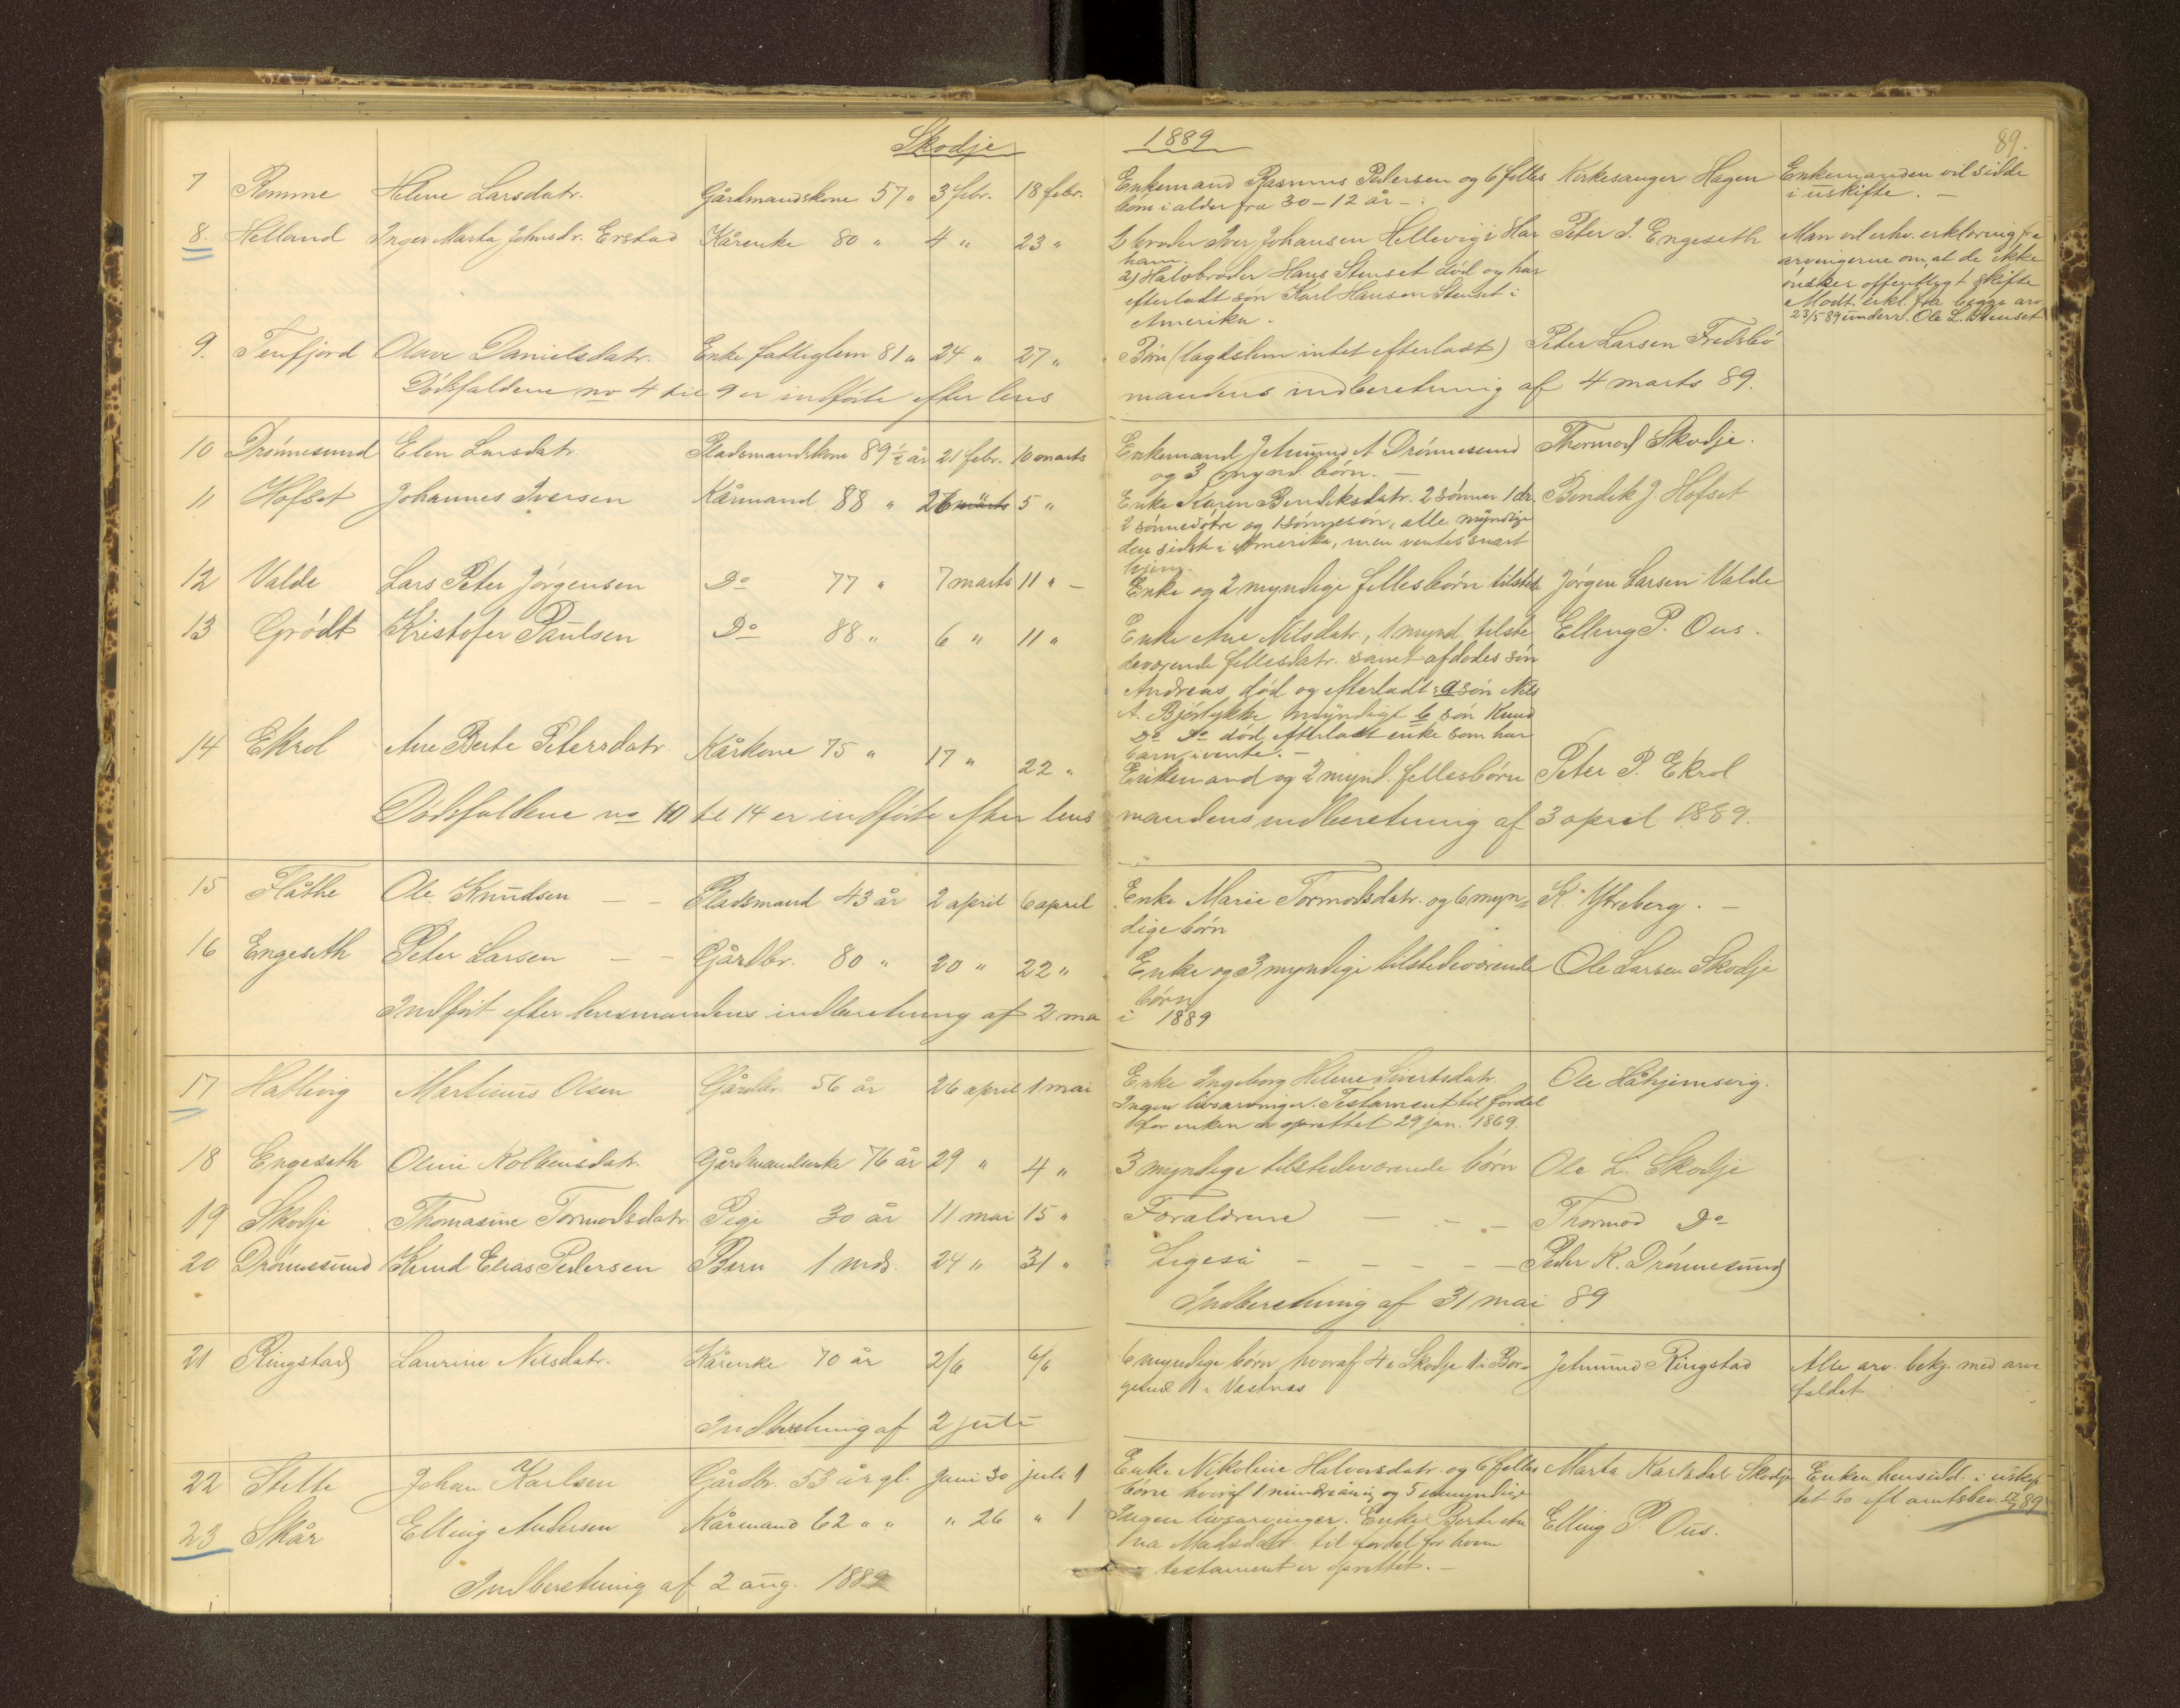 Skodje 1889
89.
7 Remme Helene Larsdatr. Gårdmandskone 57 " 3 febr. 18 febr. Enkemand Rasmus Pedersen og 6 felles Kirkesanger Hagen Enkemanden vil sidde
børn i alder fra 30 – 12 år –. i uskifte. –
8. Helland Inger Marta Johnsdr. Erstad Kårenke 80 " 4 " 23 " 1 broder Iver Johansen Hellevig i Har Peter J. Engeseth Man vil erhv. erklæring fra
ham. arvingerne om, at de ikke
2) Halvbroder Hans Stenset død og har ønsker offentligt skifte
efterladt søn Karl Hansen Stenset i Modt. erkl. fra begge arv.
Amerika. 23/5 89 underr. Ole L. Stenset
9. Tenfjord Olave Danielsdatr. Enke fattiglem 81 " 24 " 27 " Børn (lagdslem intet efterladt) Peter Larsen Fredsbø
Dødsfaldene no 4 til 9 er indførte efter lens mandens indberetning af 4 marts 89.
10 Drønnesund Elen Larsdatr. Pladsmandskone 89 1/2 år 21 febr. 10 marts Enkemand Jetmund A Drønnesund Thormod Skodje.
og 3 mynd børn. –
11 Hofset Johannes Iversen Kårmand 88 " 26 marts 5 " Enke Karen Bendiksdatr. 2 sønner 1 dr. Bendik J Hofset
2 sønnedøtre og 1 sønnesøn, alle myndige
den sidste i Amerika, men ventes snart
hjem.
12 Valde Lars Peter Jørgensen Do 77 " 7 marts 11 " – Enke og 2 myndige fellesbørn tilstede Jørgen Larsen Valde
13 Grødt Kristofer Paulsen Do 88 " 6 " 11 " Enke Ane Nilsdatr., 1 mynd. tilste Elling P. Ous.
deværende fellesdatr. samt afdødes søn
Andreas død og efterladt: a søn Nils
A. Bjørlykke myndigt b søn Knud
Do Do død, efterladt enke som har
barn i vente. –
14 Ekrol Ane Berte Petersdatr Kårkone 75 " 17 " 22 " Enkemand og 2 mynd. fellesbørn Peter P. Ekrol
Dødsfaldene no 10 til 14 er indførte efter lens mandens indberetning af 3 april 1889.
15 Flåthe Ole Knudsen – – Pladsmand 43 år 2 april 6 april Enke Marie Tormodsdatr. og 6 myn= K. Ytreberg. –
dige børn
16 Engeseth Peter Larsen – – Gårdbr. 80 " 20 " 22 " Enke og 3 myndige tilstedeværende Ole Larsen Skodje
børn
Indført efter lensmandens indberetning af 2 ma i 1889
17 Hatlevig Martinus Olsen Gårdbr. 56 år 26 april 1 mai Enke Ingeborg Helene Sivertsdatr. Ole Håhjemsvig.
Ingen livsarvinger. Testament til fordel
for enken er oprettet 29 jan. 1869.
18 Engeseth Oline Kolbensdatr. Gårdmandsenke 76 år 29 " 4 " 3 myndige tilstedeværende børn Ole L. Skodje
19 Skodje Thomasine Tormodsdatr. Pige 30 år 11 mai 15 " Forældrene – – – Thormod Do
20 Drønnesund Knud Elias Pedersen Barn 1 md. 24 " 31 " Ligeså – – – – – Peder K. Drønnesund
Indberetning af 31 mai 89
21 Ringstad Laurine Nilsdatr. Kårenke 70 år 2/6 6/6 6 myndige børn hvoraf 4 i Skodje 1 i Bor= Jetmund Ringstad Alle arv. bekj. med arve
gund 1 i Vestnes faldet
Indberetning af 2 juli
22 Stette Johan Karlsen Gårdbr. 53 år gl. Juni 30 juli 1 Enke Nikoline Halvorsdatr. og 6 felles Marta Karlsdat Skodje Enken hensidd. i uskif
børn hvoraf 1 mindreårig og 5 umyndige tet bo efl amtsbev. 17/7 89
23 Skår Elling Andersen Kårmand 62 " " " 26 " 1 Ingen livsarvinger. Enke Berte Ka Elling P. Ous.
Madsdatr til fordel for hvem
testament er oprettet. –
Indberetning af 2 aug. 1889